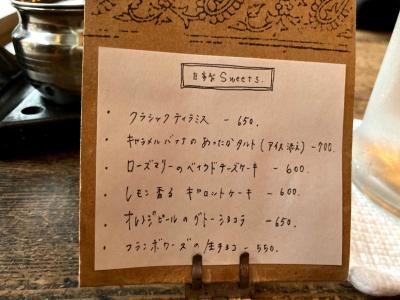 日章 Sweets.
・クラシックティラミス － 650.
・キャラメルバナナのあったかタルト（アイス添え）－700.
・ローズマリーのベイクドチーズケーキ － 600.
・レモン香る キャロットケーキ － 600.
・オレンジピールのガトーショコラ － 650.
・フランボワーズの生チョコ － 550.